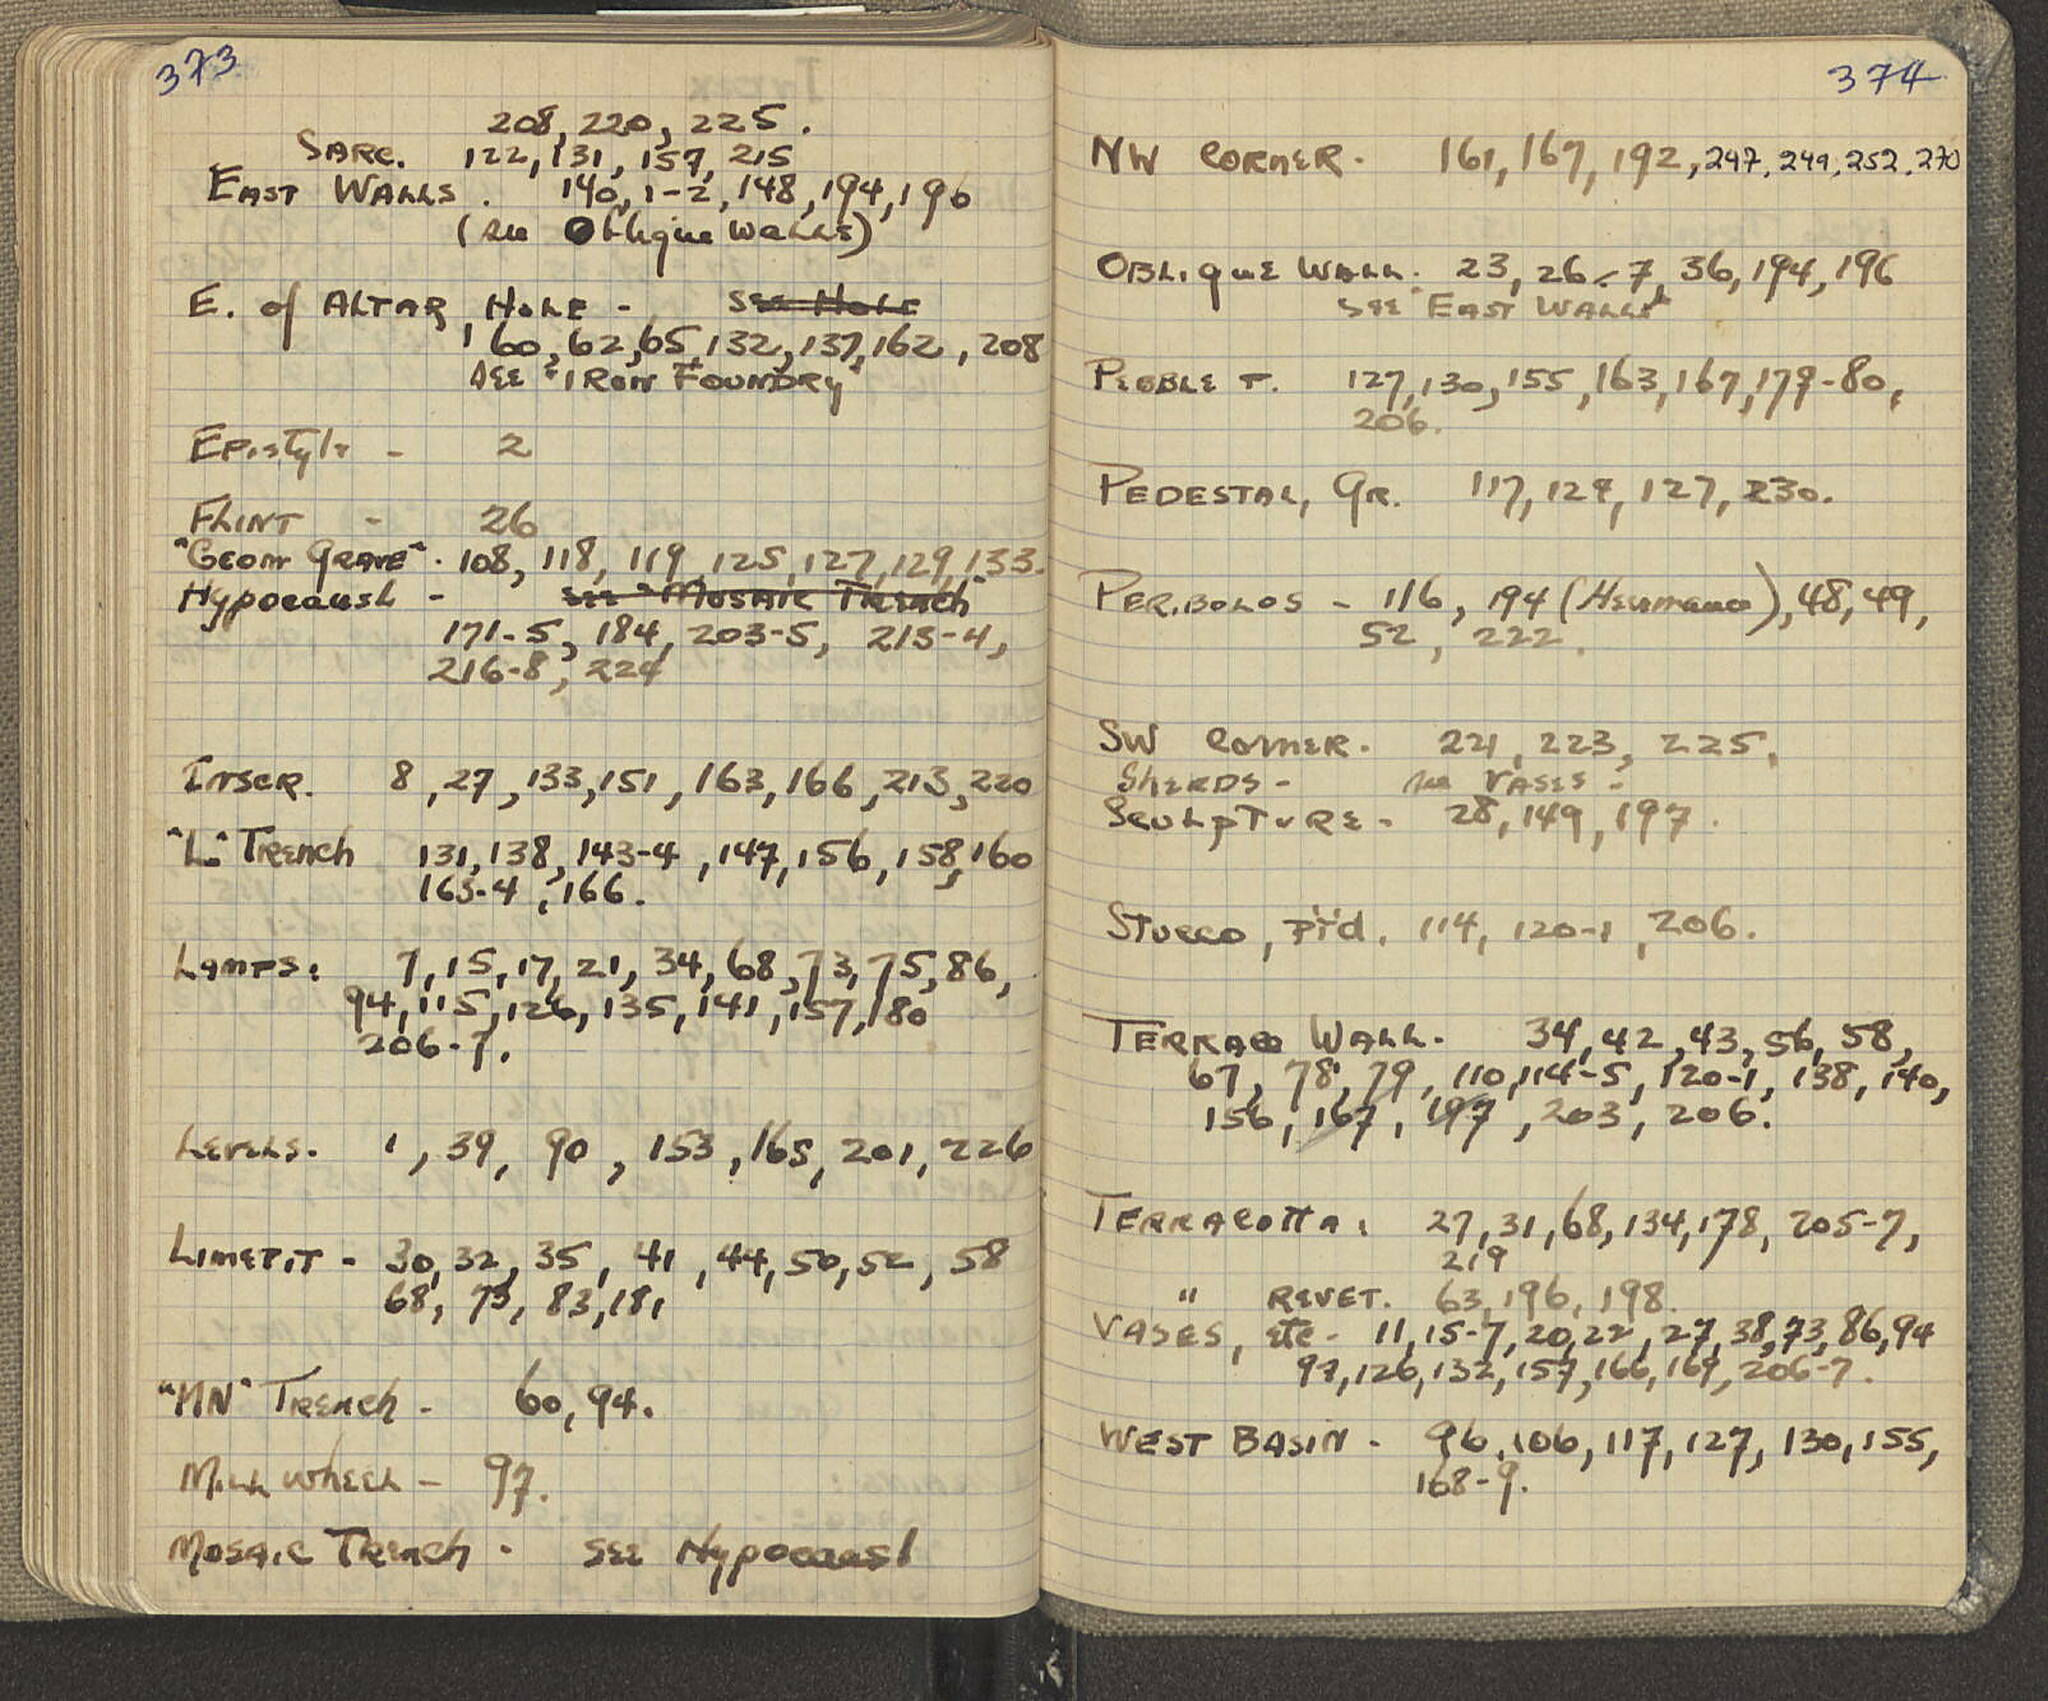 373
208, 220, 225.
SARC. 122, 131, 157, 215
EAST WALLS. 140, 1-2, 148, 194, 196
(see Oblique Walls)
E. of ALTAR, HOLE - see Hole
60, 62, 65, 132, 137, 162, 208
SEE "IRON FOUNDRY"
Epistyle - 2
FLINT - 26
"GEOM GRAVE". 108, 118, 119, 125, 127, 129, 133.
Hypocaust - see "MOSAIC TRENCH"
171-5, 184, 203-5, 213-4,
216-8, 224
INSCR. 8, 27, 133, 151, 163, 166, 213, 220
"L" TRENCH 131, 138, 143-4, 147, 156, 158, 160
163-4, 166.
LAMPS: 7, 15, 17, 21, 34, 68, 73, 75, 86,
94, 115, 126, 135, 141, 157, 180
206-7.
LEVELS. 1, 39, 90, 153, 165, 201, 226
LIMEPIT - 30, 32, 35, 41, 44, 50, 52, 58
68, 75, 83, 181
"NN" TRENCH - 60, 94.
MILL WHEEL - 97.
MOSAIC TRENCH - SEE Hypocaust
374
NW CORNER. 161, 167, 192, 247, 249, 252, 270
OBLIQUE WALL. 23, 26-7, 36, 194, 196
SEE "EAST WALLS"
PEBBLE T. 127, 130, 155, 163, 167, 179-80,
206.
PEDESTAL, GR. 117, 124, 127, 230.
PERIBOLOS - 116, 194 (Heermance), 48, 49,
52, 222.
SW CORNER. 221, 223, 225.
SHERDS - see VASES.
SCULPTURE - 28, 149, 197.
STUCCO, PT'D. 114, 120-1, 206.
TERRACE WALL. 34, 42, 43, 56, 58,
67, 78, 79, 110, 114-5, 120-1, 138, 140,
156, 167, 197, 203, 206.
TERRACOTTA: 27, 31, 68, 134, 178, 205-7,
219
" REVET. 63, 196, 198.
VASES, ETC - 11, 15-7, 20, 22, 27, 38, 73, 86, 94
97, 126, 132, 157, 166, 167, 206-7.
WEST BASIN - 96, 106, 117, 127, 130, 155,
168-9.